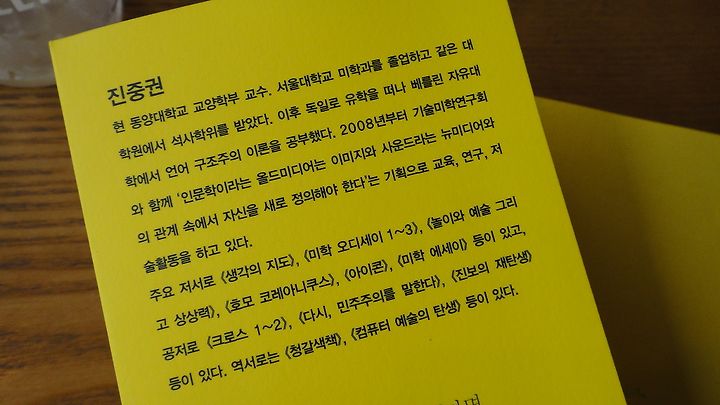 진중권
현 동양대학교 교양학부 교수. 서울대학교 미학과를 졸업하고 같은 대
학원에서 석사학위를 받았다. 이후 독일로 유학을 떠나 베를린 자유대
학에서 언어 구조주의 이론을 공부했다. 2008년부터 기술미학연구회
와 함께 '인문학이라는 올드미디어는 이미지와 사운드라는 뉴미디어와
의 관계 속에서 자신을 새로 정의해야 한다'는 기획으로 교육, 연구, 저
술활동을 하고 있다.
주요 저서로 《생각의 지도》, 《미학 오디세이 1~3》, 《놀이와 예술 그리
고 상상력》, 《호모 코레아니쿠스》, 《아이콘》, 《미학 에세이》 등이 있고,
공저로 《크로스 1~2》, 《다시, 민주주의를 말한다》, 《진보의 재탄생》
등이 있다. 역서로는 《청갈색책》, 《컴퓨터 예술의 탄생》 등이 있다.